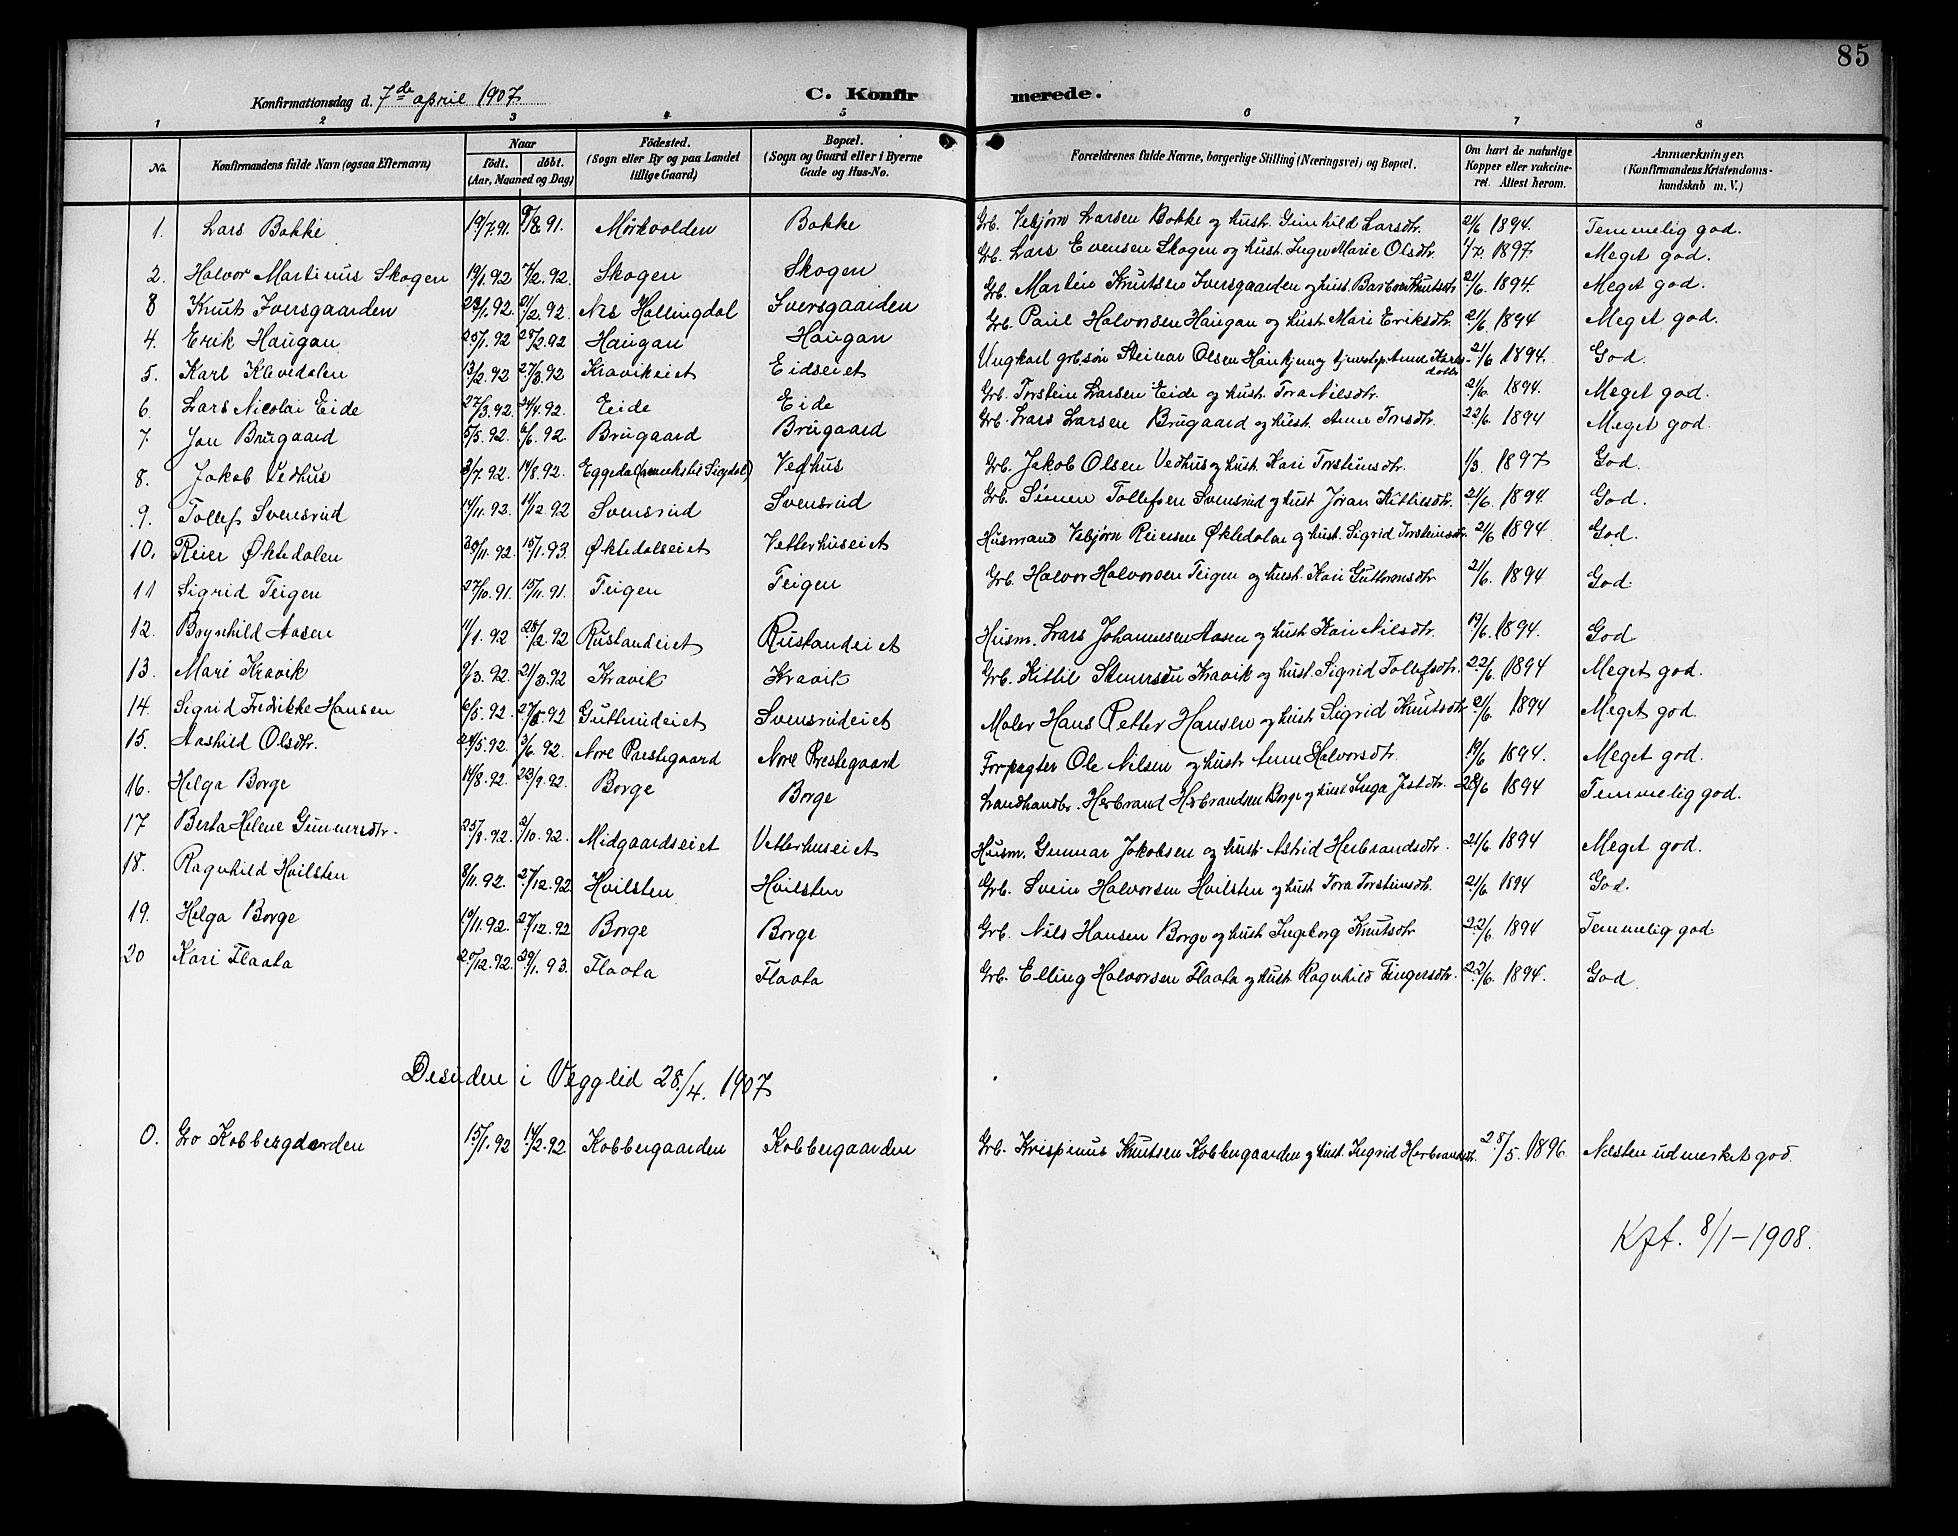 85
Konfirmationsdag d. 7de april 1907 C. Konfirmerede.
1 2 3 4 5 6 7 8
No. Konfirmandens fulde Navn (ogsaa Efternavn) Naar födt. döbt. (Aar, Maaned og Dag) Födested. (Sogn eller By og paa Landet tillige Gaard) Bopæl. (Sogn og Gaard eller i Byerne Gade og Hus-No. Forældrenes fulde Navne, borgerlige Stilling (Næringsvei) og Bopæl. Om havt de naturlige Kopper eller vakcineret. Attest herom. Anmærkninger. (Konfirmandens Kristendomskundskab m. V.)
1. Lars Bakke 19/7.91. 9/8.91. Mørkvolden Bakke Grb. Vebjørn Larsen Bakke og hust. Gunhild Larsdtr. 21/6 1894. Temmelig god.
2. Halvor Martinus Skogen 19/1.92 7/2.92. Skogen Skogen Grb. Lars Evensen Skogen og hust. Inger Marie Olsdtr. 1/7. 1897. Meget god.
3 Knut Iversgaarden 23/1.92. 21/2.92. Nes Hallingdal Iversgaarden Grb. Martin Knutsen Iversgaarden og hust. Barbro Knutsdtr 21/6. 1894. Meget god.
4. Erik Haugan 25/1.92 28/2.92 Haugan Haugan Grb. Paul Halvorsen Haugan og hust. Mari Eriksdtr. 21/6. 1894 Meget god.
5. Karl Klevedalen 13/2.92 27/3.92 Kravikeiet Eidseiet Ungkarl grb.søn Steinar Olsen og tjenestep. Anne Karlsdatter 21/6 1894. God.
6. Lars Nicolai Eide 27/3.92. 24/4.92. Eide Eide Grb. Torstein Larsen Eide og hust. Tora Nilsdtr. 21/6. 1894. Meget god.
7. Jon Brugaard 5/5.92. 6/6.92. Brugaard Brugaard Grb. Lars Larsen Brugaard og hust. Anne Jonsdtr. 22/6. 1894 Meget god.
8. Jakob Vedhus 3/7.92. 14/8.92. Eggedal (anneks til Sigdal) Vedhus Grb. Jakob Olsen Vedhus og hust. Kari Torsteinsdtr. 1/3. 1897 God.
9. Tollef Svensrud 14/11.92. 11/12 92 Svensrud Svensrud Grb. Simen Tollefsen Svensrud og hust Jøran Kittilsdtr. 21/6. 1894. God.
10. Reier Øktedalen 30/11.92. 15/1.93. Øktedalseiet Vetterhuseiet Husmand Vebjørn Reiersen Øktedalen og hust. Sigrid Torsteinsdtr. 21/6 1894 God.
11 Sigrid Teigen 27/10.91. 15/11.91. Teigen Teigen Grb. Halvor Halvorsen Teigen og hust. Kari Guttormsdtr 21/6. 1894 God.
12. Brynhild Aasen 11/1.92 28/2.92 Rustandeiet Rustandeiet Husm. Lars Johannesen Aasen og hust. Kari Nilsdtr. 19/6. 1894. God
13. Mari Kravik 9/3.92. 21/3.92 Kravik Kravik Grb. Kittil Stenersen Kravik og hust. Sigrid Tollefsdtr. 22/6. 1894 Meget god.
14. Sigrid Fredrikke Hansen 6/5.92. 27/5.92 Gutterudeiet Svensrudeiet Maler Hans Petter Hansen og hust Sigrid Knutsdtr 21/6. 1894 Meget god.
15. Aashild Olsdtr. 24/5.92. 3/6.92. Nore Prestegaard Nore Prestegaard Forpagter Ole Nilsen og hust. Anne Halvorsdtr. 19/6 1894. Meget god.
16. Helga Borge 14/8.92. 23/9.92. Borge Borge Landhandler. Herbrand Herbrandsen Borge og hust. Inga 22/6 1894 Temmelig god.
17 Berta Helene Gunnarsdtr. 25/8.92. 2/10.92. Midgaardseiet Vetterhuseiet Husm. Gunnar Jakobsen og hust. Astrid Herbrandsdtr. 21/6. 1894 Meget god.
18. Ragnhild Hvilsten 8/11.92. 27/12.92 Hvilsten Hvilsten Grb. Svein Halvorsen Hvilsten og hust. Tora Torsteinsdtr. 21/6. 1894 God.
19. Helga Borge 19/11.92. 27/12.92 Borge Borge Grb. Nils Hansen Borge og hust. Ingeborg Knutsdtr 22/6. 1894 Temmelig god
20 Kari Flaata 20/12.92. 29/1.93. Flaata Flaata Grb. Elling Halvorsen Flaata og hust. Ragnhild Fingersdtr. 22/6. 1894. God.
Desuden i Vegglid 28./4. 1907
0. Gro Kobbergaarden 15/1.92 14/2.92 Kobbergaarden Kobbergaarden Grb. Krispinus Knutsen Kobbergaarden og hust. Ingrid Herbrandsdtr. 28/5. 1896 Næsten udmerket god.
Kft. 8/1-1908.